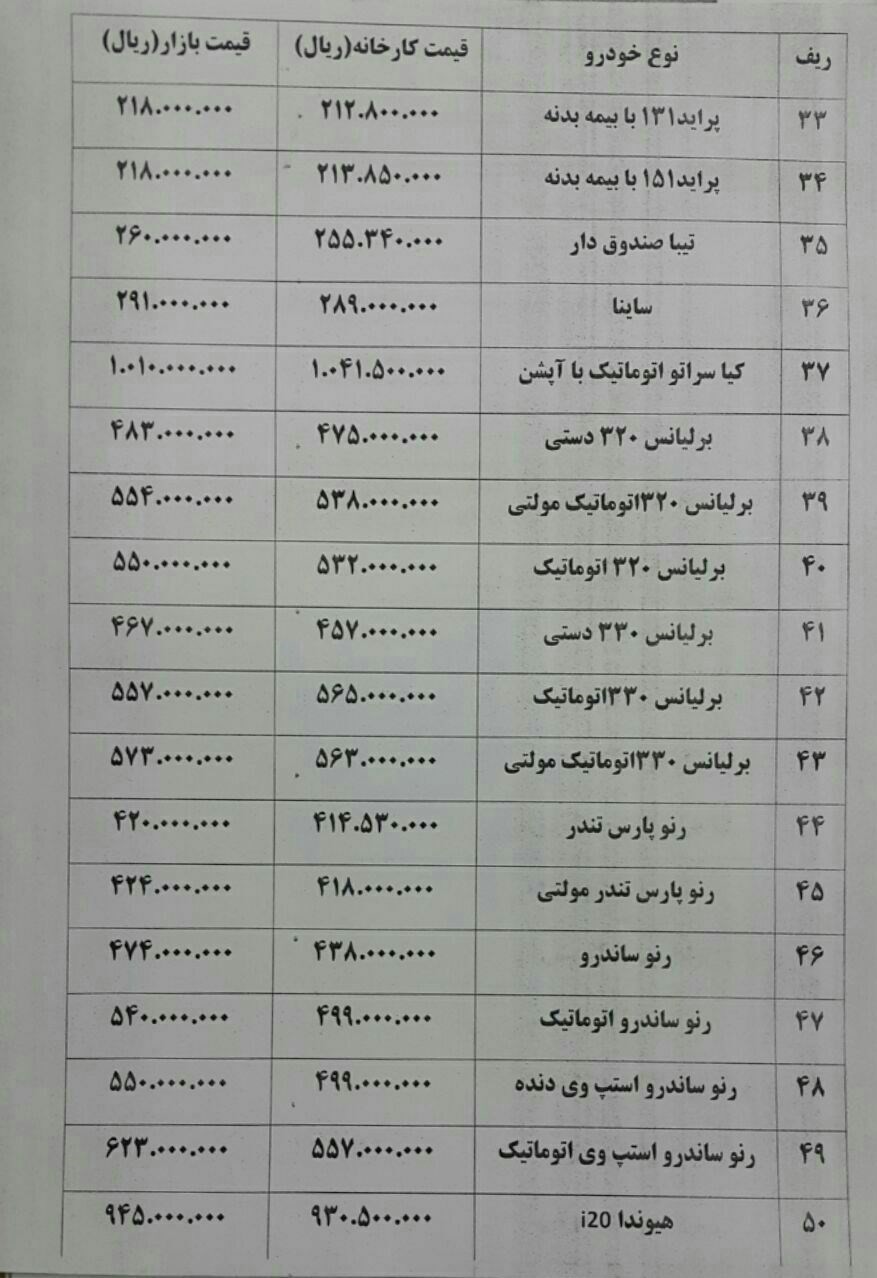 ریف نوع خودرو قیمت کارخانه(ریال) قیمت بازار(ریال)
۳۳ پراید۱۳۱ با بیمه بدنه ۲۱۲.۸۰۰.۰۰۰ ۲۱۸.۰۰۰.۰۰۰
۳۴ پراید۱۵۱ با بیمه بدنه ۲۱۳.۸۵۰.۰۰۰ ۲۱۸.۰۰۰.۰۰۰
۳۵ تیبا صندوق دار ۲۵۵.۳۴۰.۰۰۰ ۲۶۰.۰۰۰.۰۰۰
۳۶ ساینا ۲۸۹.۰۰۰.۰۰۰ ۲۹۱.۰۰۰.۰۰۰
۳۷ کیا سراتو اتوماتیک با آپشن ۱.۰۴۱.۵۰۰.۰۰۰ ۱.۰۱۰.۰۰۰.۰۰۰
۳۸ برلیانس ۳۲۰ دستی ۴۷۵.۰۰۰.۰۰۰ ۴۸۳.۰۰۰.۰۰۰
۳۹ برلیانس ۳۲۰اتوماتیک مولتی ۵۳۸.۰۰۰.۰۰۰ ۵۵۴.۰۰۰.۰۰۰
۴۰ برلیانس ۳۲۰ اتوماتیک ۵۳۲.۰۰۰.۰۰۰ ۵۵۰.۰۰۰.۰۰۰
۴۱ برلیانس ۳۳۰ دستی ۴۵۷.۰۰۰.۰۰۰ ۴۶۷.۰۰۰.۰۰۰
۴۲ برلیانس ۳۳۰اتوماتیک ۵۶۵.۰۰۰.۰۰۰ ۵۵۷.۰۰۰.۰۰۰
۴۳ برلیانس ۳۳۰اتوماتیک مولتی ۵۶۳.۰۰۰.۰۰۰ ۵۷۳.۰۰۰.۰۰۰
۴۴ رنو پارس تندر ۴۱۴.۵۳۰.۰۰۰ ۴۲۰.۰۰۰.۰۰۰
۴۵ رنو پارس تندر مولتی ۴۱۸.۰۰۰.۰۰۰ ۴۲۴.۰۰۰.۰۰۰
۴۶ رنو ساندرو ۴۳۸.۰۰۰.۰۰۰ ۴۷۴.۰۰۰.۰۰۰
۴۷ رنو ساندرو اتوماتیک ۴۹۹.۰۰۰.۰۰۰ ۵۴۰.۰۰۰.۰۰۰
۴۸ رنو ساندرو استپ وی دنده ۴۹۹.۰۰۰.۰۰۰ ۵۵۰.۰۰۰.۰۰۰
۴۹ رنو ساندرو استپ وی اتوماتیک ۵۵۷.۰۰۰.۰۰۰ ۶۲۳.۰۰۰.۰۰۰
۵۰ هیوندا i20 ۹۳۰.۵۰۰.۰۰۰ ۹۴۵.۰۰۰.۰۰۰